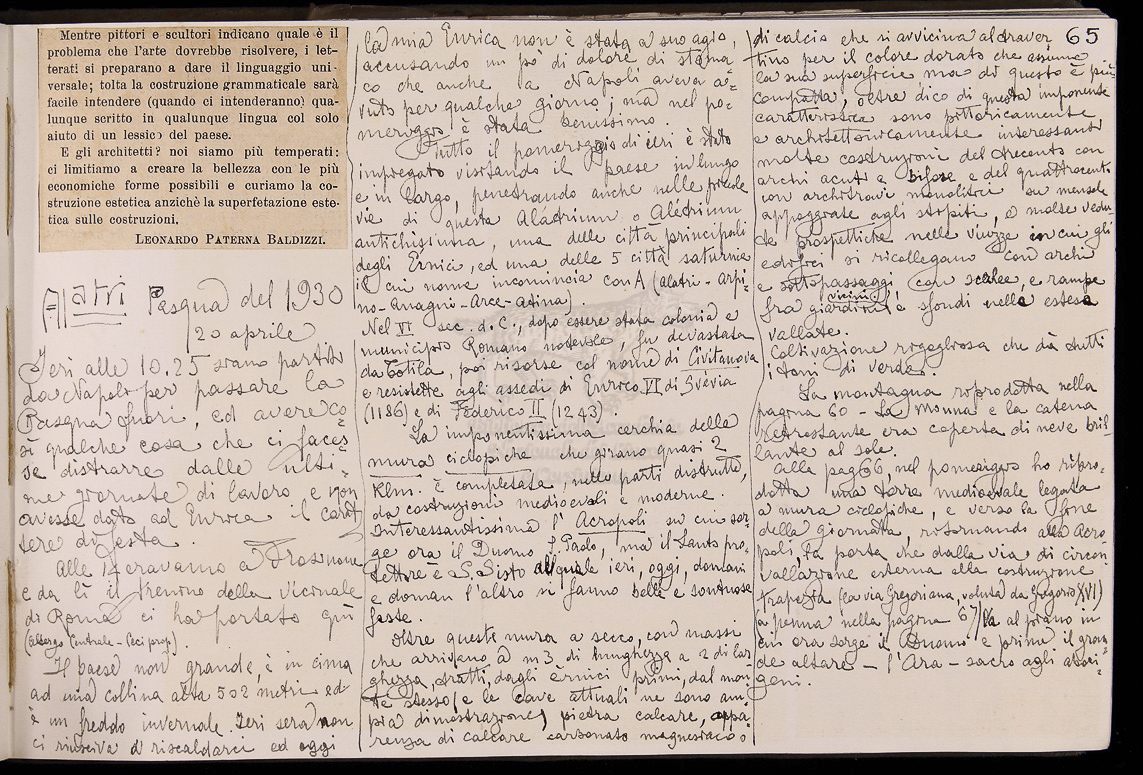 Mentre pittori e scultori indicano quale è il
problema che l'arte dovrebbe risolvere, i let-
terati si preparano a dare il linguaggio uni-
versale; tolta la costruzione grammaticale sarà
facile intendere (quando ci intenderanno) qua-
lunque scritto in qualunque lingua col solo
aiuto di un lessico del paese.
E gli architetti? noi siamo più temperati:
ci limitiamo a creare la bellezza con le più
economiche forme possibili e curiamo la co-
struzione estetica anzichè la superfetazione este-
tica sulle costruzioni.
LEONARDO PATERNA BALDIZZI.
Alatri Pasqua del 1930
20 aprile
Ieri alle 10.25 siamo partiti
da Napoli per passare la
Pasqua fuori, ed avere co-
sì qualche cosa che ci faces-
se distrarre dalle ulti-
me giornate di lavoro e non
avesse dato, ad Enrica il carat-
tere di festa.
Alle eravamo a Frosinone
e da lì il trenino della vicinale
di Roma ci ha portato qui
(albergo Centrale - Ceci prop).
Il paese non grande, è in cima
ad una collina alta 502 metri ed
è un freddo invernale. Ieri sera non
ci riusciva di riscaldarci ed oggi
la mia Enrica non è stata a suo agio,
accusando un pò di dolore di stoma-
co che anche la Napoli aveva a-
vuto per qualche giorno; ma nel po-
meriggio è stata benissimo.
Tutto il pomeriggio di ieri è stato
impiegato visitando il paese in lungo
e in largo, penetrando anche nelle piccole
vie di questa Aladrium o Alétrium
antichissima, una delle città principali
degli Ernici, ed una delle 5 città saturnie
il cui nome incomincia con A (alatri - arpi-
no - anagni - Arce - atina)
Nel VI sec. d.C., dopo essere stata colonia e
municipio Romano notevole, fu devastata
da Totila, poi risorse col nome di Civitanova
e resistette agli assedi di Enrico VI di Svevia
(1186) e di Federico II (1243).
La imponentissima cerchia delle
mura ciclopiche che girano quasi 2
Klm. è completata nelle parti distrutte,
da costruzioni medioevali e moderne.
Interessantissima l'Acropoli su cui sor-
ge ora il Duomo S. Paolo, ma il Santo pro-
tettore è S. Sisto al quale ieri, oggi, domani
e doman l'altro si fanno belle e sontuose
feste.
Oltre queste mura a secco, con massi
che arrivano a m 3 di lunghezza e 2 di lar-
ghezza, tratti, dagli ernici primi, dal mon-
te stesso (e le cave attuali ne sono am-
pia dimostrazione) pietra calcare, appa-
renza di calcare carbonato magnesiaco o
di calcio che si avvicina al traver-
65
tino per il colore dorato che assume
la sua superficie ma di questo è più
compatta, oltre dico di questa imponente
caratteristica sono pittoricamente,
e architettonicamente interessanti
molte costruzioni del trecento con
archi acuti e bifore e del quattrocento
con architravi monolitici su mensole
appoggiate agli stipiti, o molte vedu-
te prospettiche nelle viuzze in cui gli
edifici si ricollegano con archi
e sottopassaggi, con scalee, e rampe
fra giardini vicini e sfondi nelle estese
vallate.
Coltivazione rigogliosa che dà tutti
i toni di verde.
La montagna riprodotta nella
pagina 60 - La Monna e la catena
retrostante era coperta di neve bril-
lante al sole.
Alla pag 66, nel pomeriggio ho ripro-
dotta una torre medioevale legata
a mura ciclopiche, e verso la fine
della giornata, ritornando alla Acro-
poli, la porta che dalla via di circon-
vallazione esterna alla costruzione
(la via Gregoriana, voluta da Gregorio XVI)
a penna nella pagina 67/ Va al piano in
cui ora sorge il Duomo e prima il gran-
de altare - l'Ara - sacro agli abori-
geni.